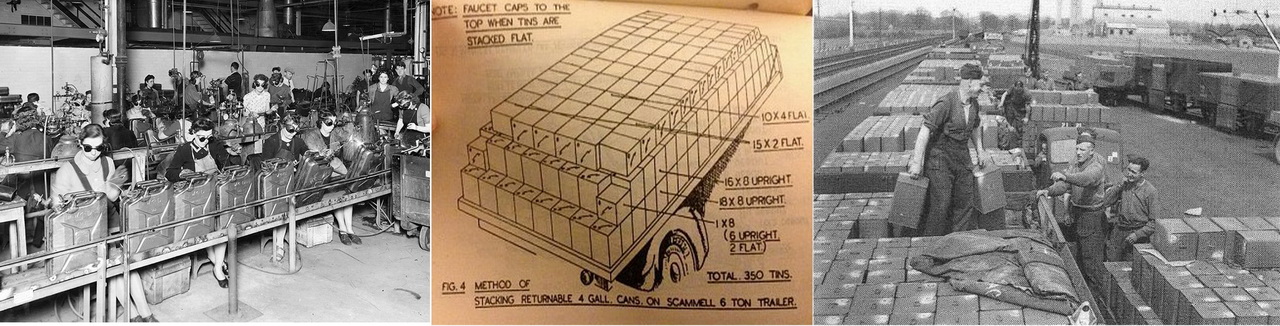 NOTE: FAUCET CAPS TO THE
TOP WHEN TINS ARE
STACKED FLAT.
10 X 4 FLAT.
15 X 2 FLAT.
16 X 8 UPRIGHT.
18 X 8 UPRIGHT.
1 X 8
(6 UPRIGHT,
2 FLAT.)
TOTAL. 350 TINS.
FIG. 4 METHOD OF
STACKING RETURNABLE 4 GALL. CANS. ON SCAMMELL 6 TON TRAILER.